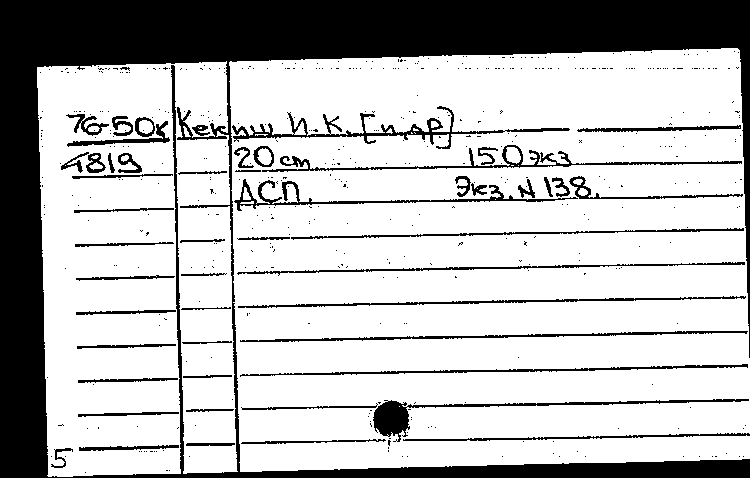 76-50к Кекиш И.К. [и др]
4819 20 cm 150 экз
ДСП. Экз. N 138.
5